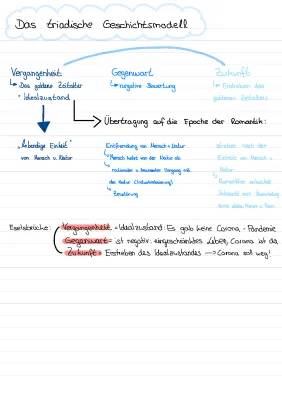 Das triadische Geschichtsmodell
Vergangenheit:
↳ Das goldene Zeitalter
• Idealzustand
Gegenwart
↳ negative Bewertung
Zukunft:
↳ Erstreben des
goldenen Zeitalters
→ Übertragung auf die Epoche der Romantik:
„lebendige Einheit"
von Mensch u. Natur
Entfremdung von Mensch u. Natur
↳ Mensch hebt von der Natur ab
rationaler u. Umgang mit
der Natur (Industrialisierung)
↳ Zerstörung
streben nach der
Einheit von Mensch u.
Natur
↳ Romantiker
Eselsbrücke:
Vergangenheit = Idealzustand: Es gab keine Corona-Pandemie
Gegenwart = ist negativ: eingeschränktes Leben, Corona ist da
Zukunft = Erstreben des Idealzustandes → Corona soll weg!